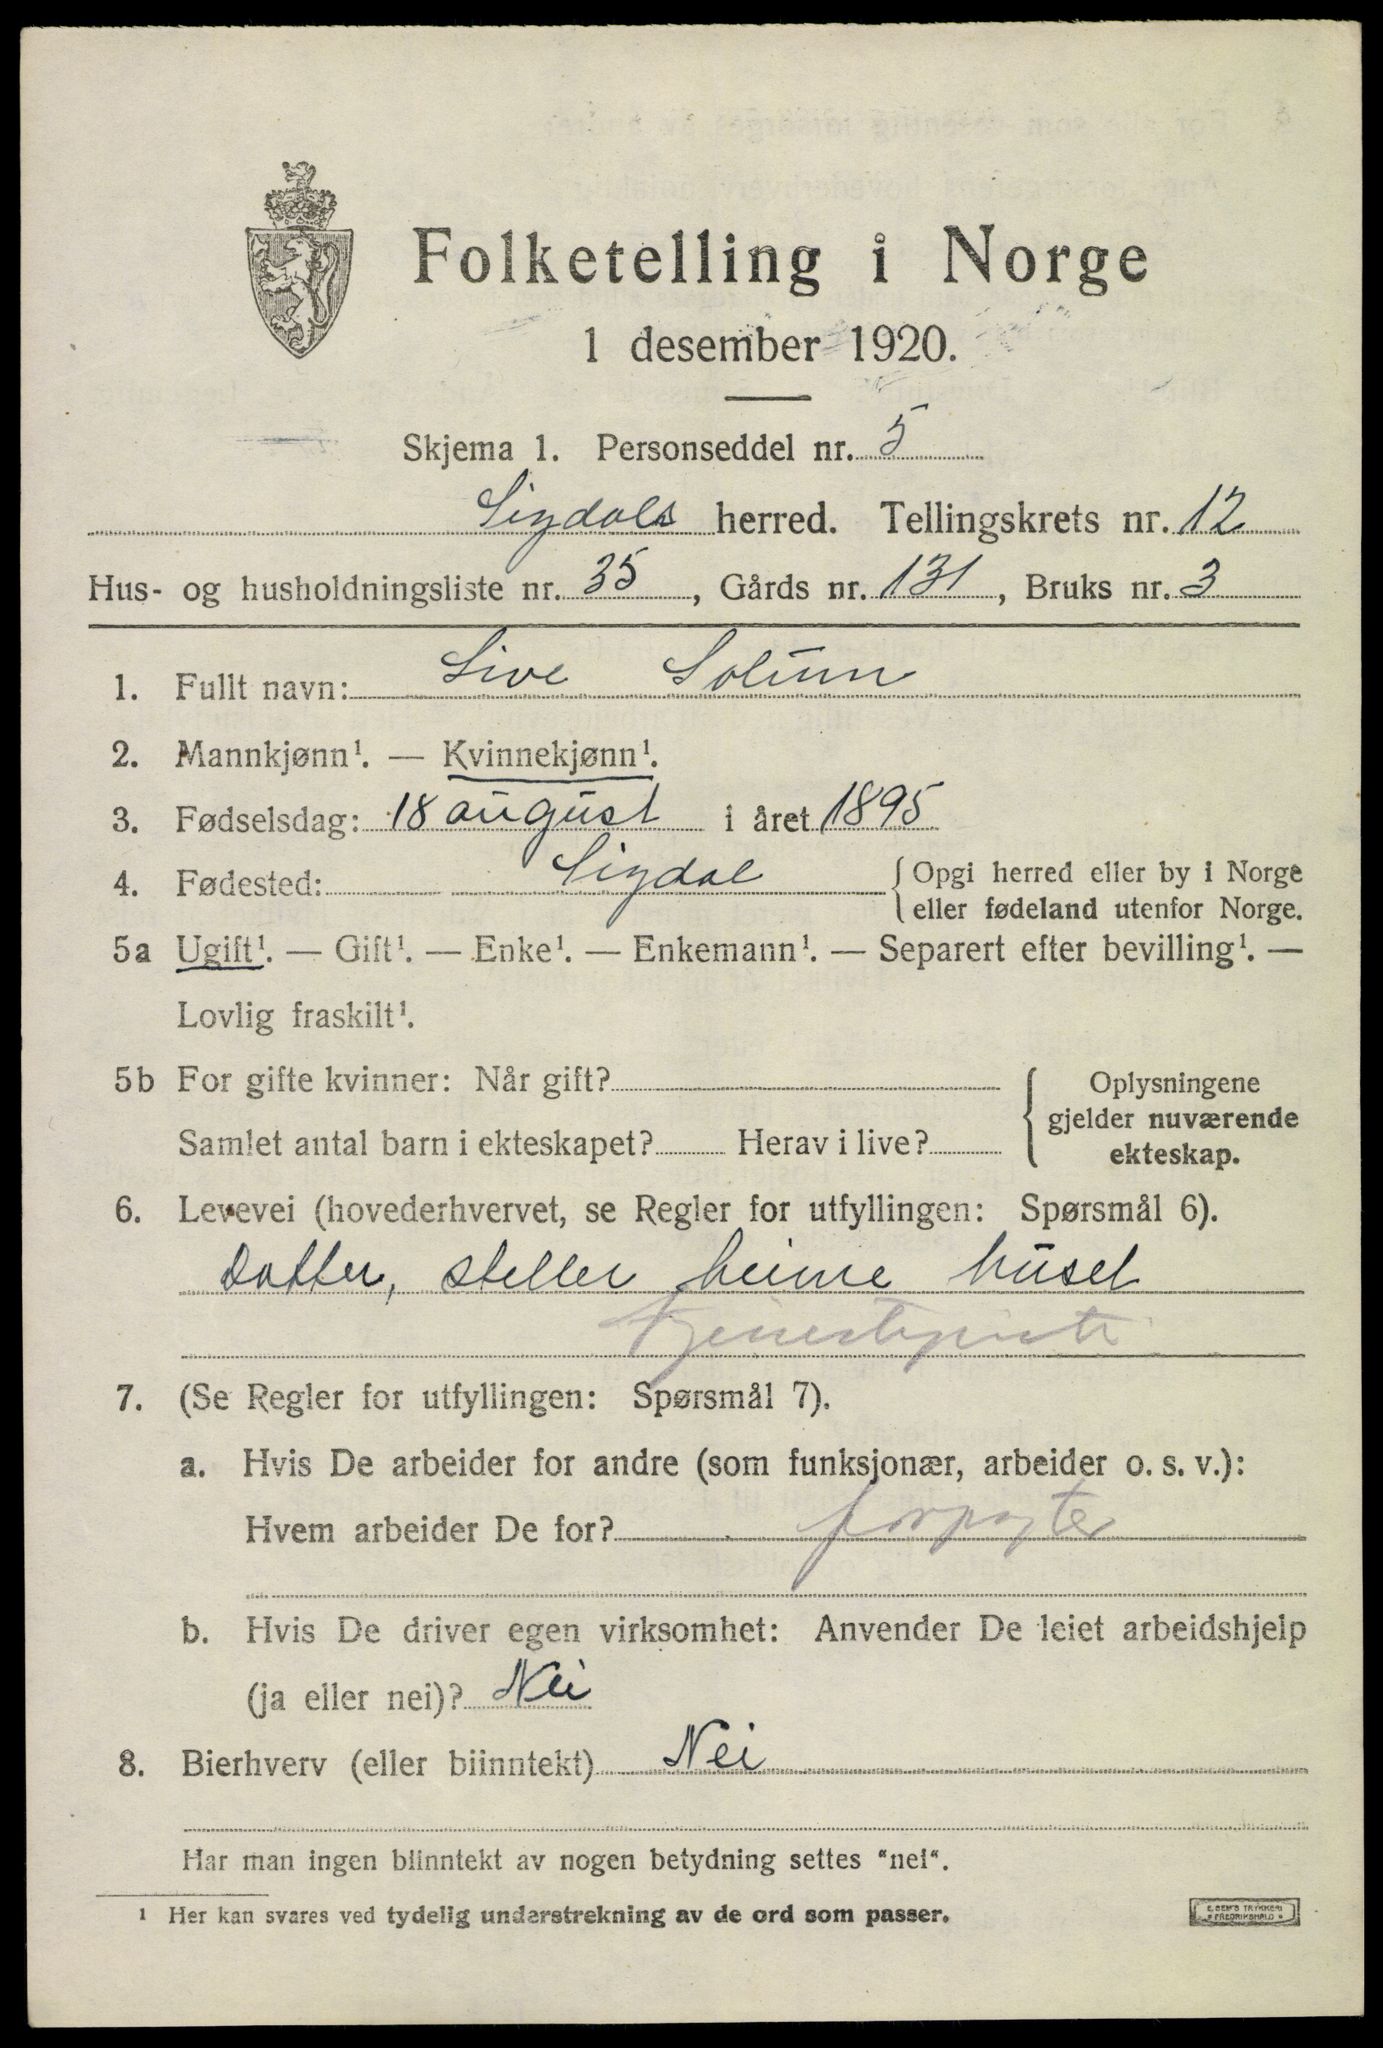 Folketelling i Norge
1 desember 1920.
Skjema 1. Personseddel nr. 5
Sigdals herred. Tellingskrets nr. 12
Hus- og husholdningsliste nr. 35, Gårds nr. 131, Bruks nr. 3
1. Fullt navn: Live Solum
2. Mannkjønn¹. — Kvinnekjønn¹.
3. Fødselsdag: 18 august i året 1895
4. Fødested: Sigdal { Opgi herred eller by i Norge
eller fødeland utenfor Norge.
5a Ugift¹. — Gift¹. — Enke¹. — Enkemann¹. — Separert efter bevilling¹. —
Lovlig fraskilt¹.
5b For gifte kvinner: Når gift? { Oplysningene
gjelder nuværende
Samlet antal barn i ekteskapet? Herav i live? ekteskap.
6. Levevei (hovederhvervet, se Regler for utfyllingen: Spørsmål 6).
Datter, steller heime huset
7. (Se Regler for utfyllingen: Spørsmål 7).
a. Hvis De arbeider for andre (som funksjonær, arbeider o. s. v.):
Hvem arbeider De for? forpagter
b. Hvis De driver egen virksomhet: Anvender De leiet arbeidshjelp
(ja eller nei)? Nei
8. Bierhverv (eller biinntekt) Nei
Har man ingen biinntekt av nogen betydning settes "nei".
¹ Her kan svares ved tydelig understrekning av de ord som passer.
E. SEM'S TRYKKERI
FREDRIKSHALD